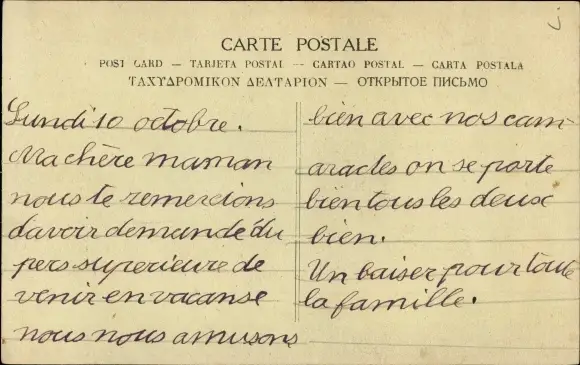 CARTE POSTALE
POST CARD — TARJETA POSTAL — CARTAO POSTAL — CARTA POSTALA
ΤΑΧΥΔΡΟΜΙΚΟΝ ΔΕΛΤΑΡΙΟΝ — ОТКРЫТОЕ ПИСЬМО
Lundi 10 octobre.
Ma chère maman
nous te remercions
davoir demandé du
pers superieure de
venir en vacanse
nous nous amusons
bien avec nos cam
aracles on se porte
bien tous les deux
bien.
Un baiser pour toute
la famille.